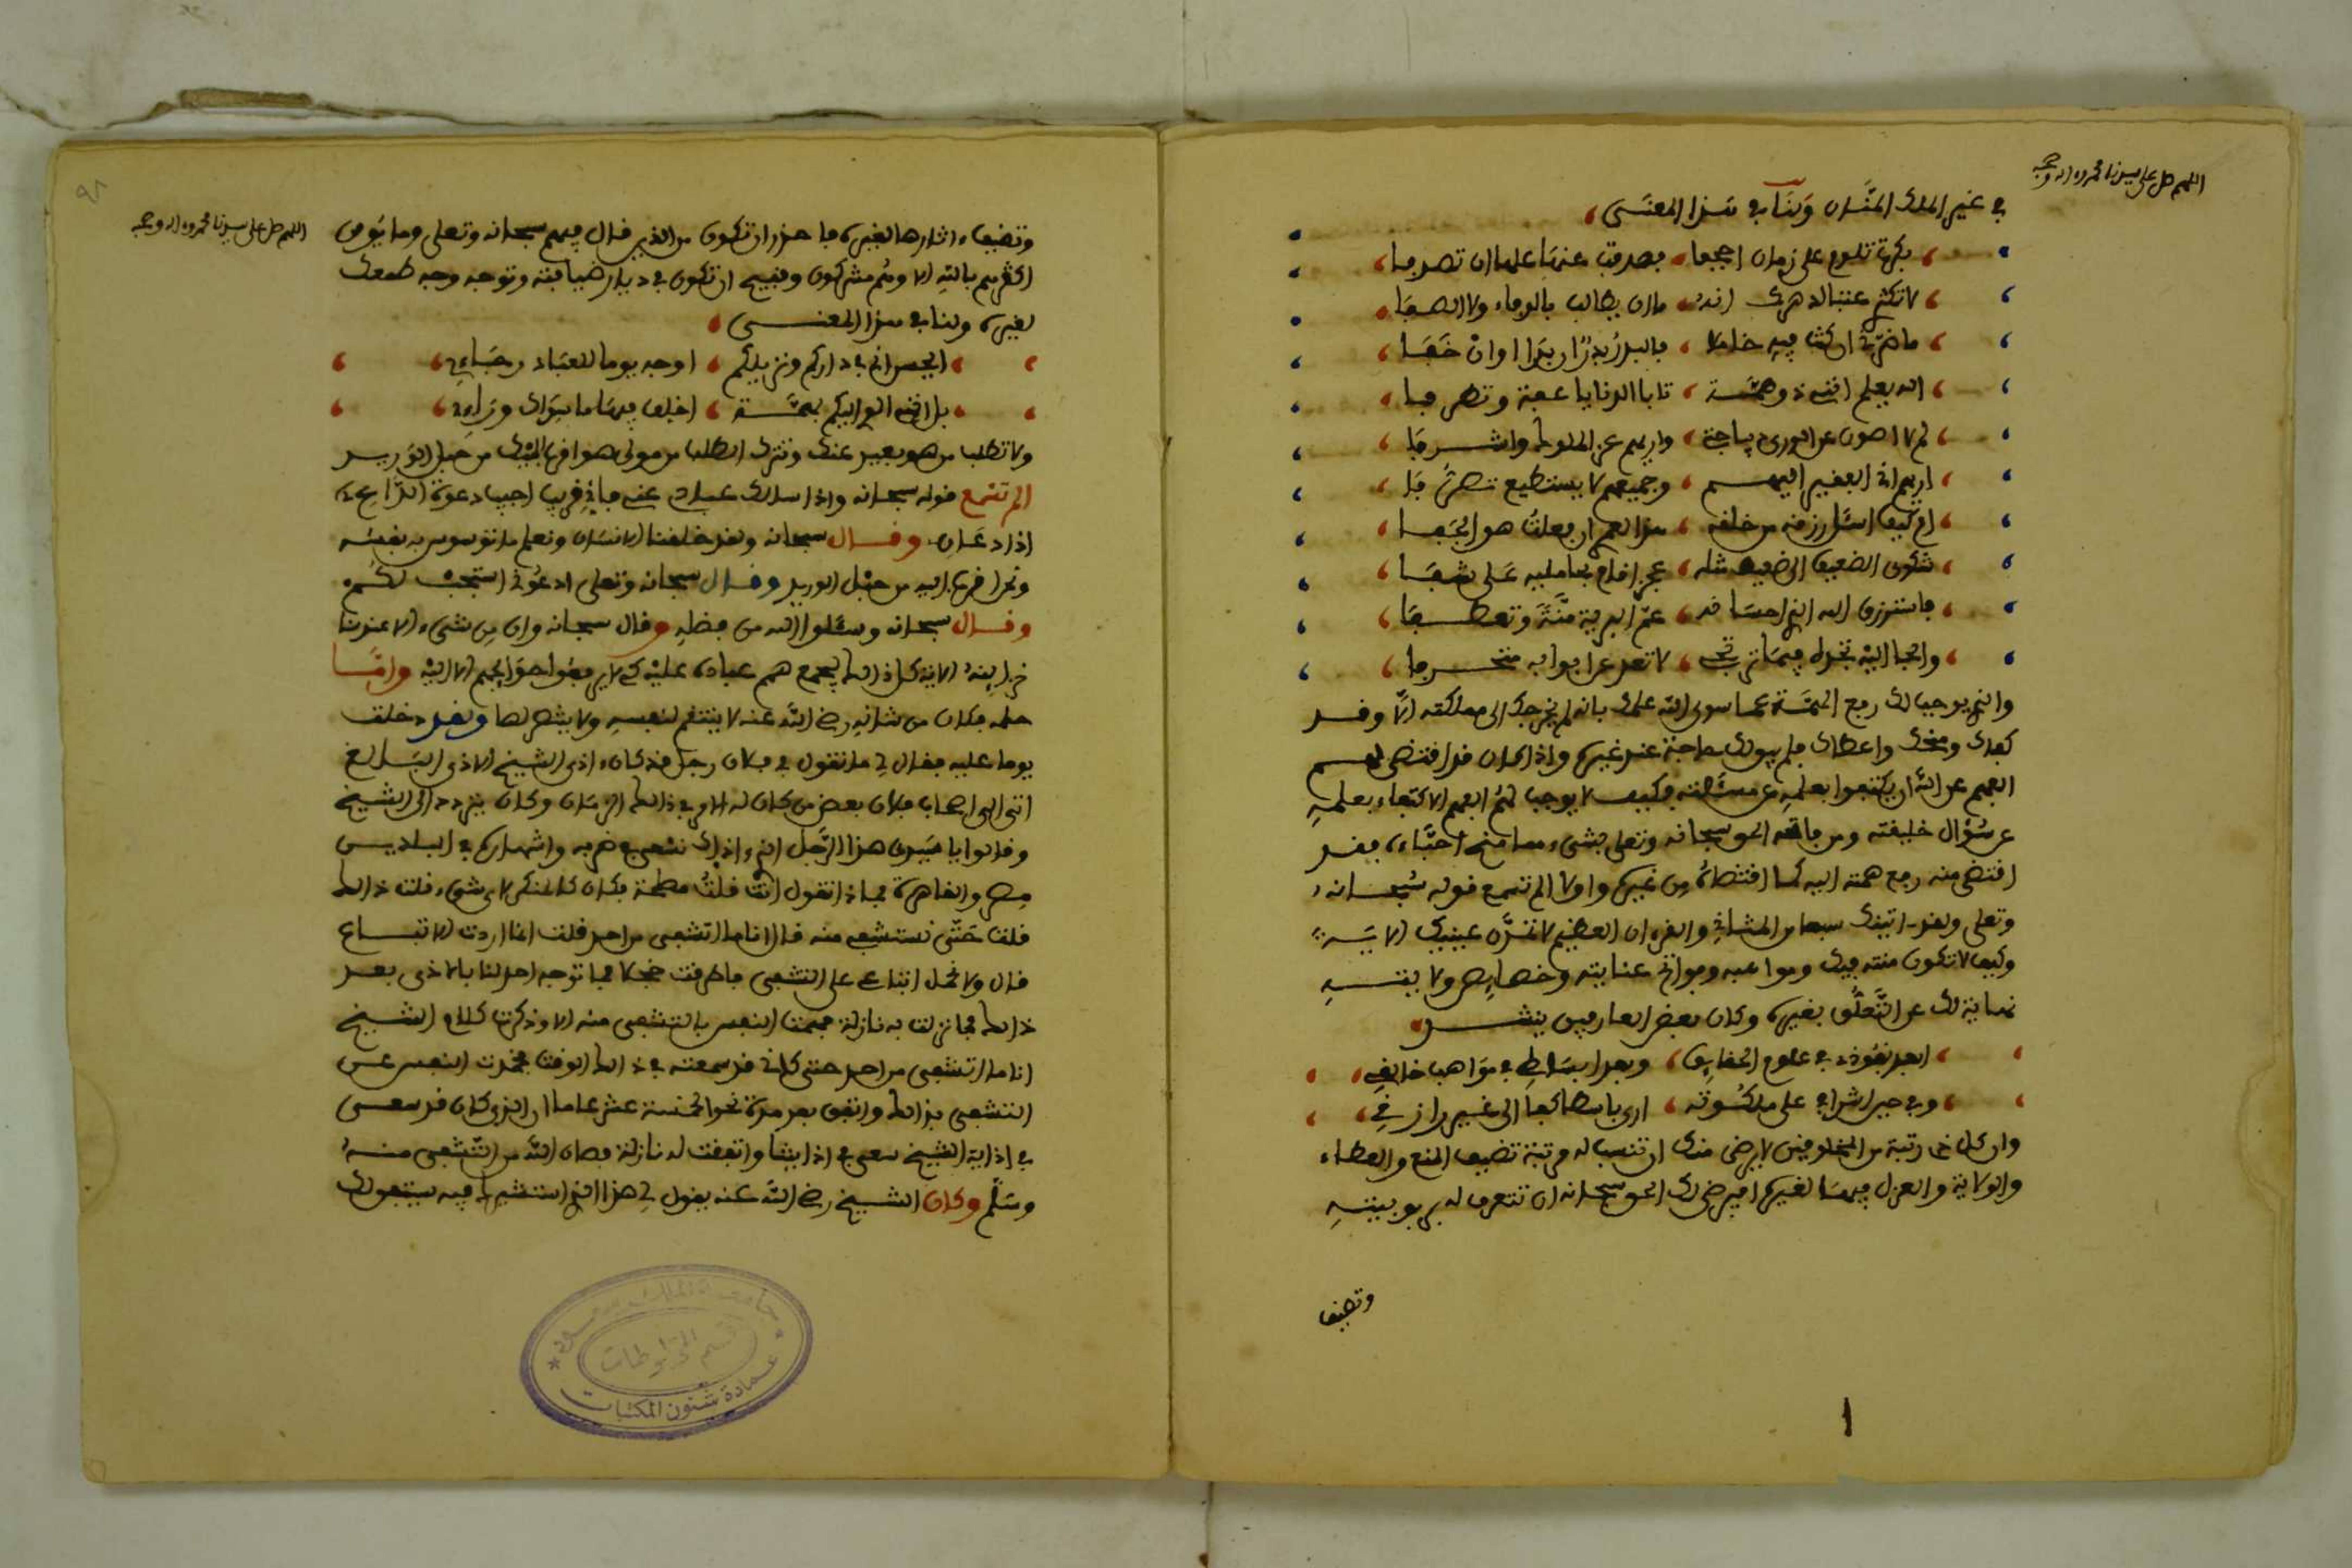 اللهم صل على سيدنا محمد وءاله وصحبه
في غير الملك المنان ولنا في هذا المعنى
بكرت تلوم على زمان اجحفا فصدفت عنها علها ان تصدفا
لا تكثري عتبا لدهرك انه ما ان يطالب بالوفاء ولا الصفا
ما ضرني ان كنت فيه خاملا فالبدر بدر ان بدا او ان خفا
الله يعلم انني ذو همة تابا الدنايا عفة وتظرفا
لم لا اصون عن الورى ديباجتي واريهم عز الملوك واشرفا
اريهم اني الفقير اليهم وجميعهم لا يستطيع تصرفا
ام كيف اسأل رزقه من خلقه هذا لعمري ان فعلت هو الجفا
شكوى الضعيف الى ضعيف مثله عجز اقام بحامليه على شفا
فاسترزق الله الذي احسانه عم البرية منة وتعطفا
والجا اليه تجده فيما ترتجي لا تعد عن ابوابه متحرفا
والذي يوجب لك رفع الهمة عما سوى الله علمك بانه لم يخرجك الى مملكته الا وقد
كفاك ومنحك واعطاك فلم يبق لك حاجة عند غيره واذا كان قد اقتضى لهم
الفهم عن الله ان يكتفوا بعلمه عن مسئلته فكيف لا يوجب لهم الفهم الاكتفاء بعلمه
عن سؤال خليقته ومن فاتحه الحق سبحانه وتعلى بشيء مما منح احباءه فقد
اقتضى منه رفع همته اليه كما اقتضاه من غيره واولا الم تسمع قوله سبحانه
وتعلى ولقد اتينك سبعا من المثاني والقرءان العظيم لا تمدن عينيك الاية
وكيف لا تكون منته فيك ومواهبه وفواتح عنايته وخصايص ولايته
نهاية لك عن التعلق بغيره وكان بعض العارفين ينشد
ابعد نفوذي في علوم الحقايق وبعد ابساطي في مواهب خالقي
وفي حين اشرافي على ملكوته ارى باسطا كفا الى غير رازقي
وان كل ذي رتبة من المخلوقين لا يرضى منك ان تنسب له مرتبة تضيف المنع والعطاء
والولاية والعزل فيها لغيره افيرضى لك الحق سبحانه ان تتعرف له بربوبيته
وتضيف
اللهم صل على سيدنا محمد وءاله وصحبه
وتضيف ءاثارها لغيره فاحذر ان تكون من الذين قال فيهم سبحانه وتعلى وما يؤمن
اكثرهم بالله الا وهم مشركون وقبيح ان تكون في دار ضيافته وتوجه وجه طمعك
لغيره ولنا في هذا المعنى
ايحسن اني في داركم ونزيلكم اوجه يوما للعباد رجاءي
بل انني الوي اليكم بهمتي اخلف فيها ما سواك وراءي
ولا تطلب من هو بعيد عنك وتترك الطلب من مولى هو اقرب اليك من حبل الوريد
الم تسمع قوله سبحانه واذا سالك عبادي عني فاني قريب اجيب دعوة الداعي
اذا دعان وقال سبحانه ولقد خلقنا الانسان ونعلم ما توسوس به نفسه
ونحن اقرب اليه من حبل الوريد وقال سبحانه وتعلى ادعوني استجب لكم
وقال سبحانه وسئلوا الله من فضله وقال سبحانه وان من شيء الا عندنا
خزاينه الاية كل ذلك ليجمع همم عباده عليه كي لا يرفعوا حوايجهم الا اليه واما
حلمه فكان من شانه رضي الله عنه لا ينتقم لنفسه ولا ينتصر لها ولقد دخلت
يوما عليه فقال لي ما تقول في فلان رجل قد كان ءاذى الشيخ الاذى البالغ
اتى الى اصحاب فلان بعض من كان له الامر في ذلك الزمان وكان يتردد الى الشيخ
وقالوا يا سيدي هذا الرجل الذي ءاذاك نسعى في ضربه واشهاره في البلدين
مصر والقاهرة فماذا تقول انت قلت مصلحة فكان كالمنكر لاي شيء قلت ذلك
فقلت حتى نستشفي منه قال انا ما اتشفى من احد قلت انما اردت الاتباع
قال ولا نحمل اتباعي على التشفي فاطرقت خجلا فما توجه احد لنا بالاذى بعد
ذلك فما نزلت به نازلة فهمت النفس بالتشفي منه الا وذكرت كلام الشيخ
انا ما اتشفى من احد حتى كاني قد سمعته في ذلك الوقت فخمدت النفس عن
التشفي بذلك واتفق بعد مدة نحو الخمسة عشر عاما ان الذي كان قد سعى
في اذاية الشيخ سعى في اذايتنا واتفقت له نازلة فصان الله من التشفي منه
وسلم وكان الشيخ رضي الله عنه يقول لي هذا الذي استشير فيه يستبقونك
جامعة الملك سعود
قسم المخطوطات
عمادة شئون المكتبات